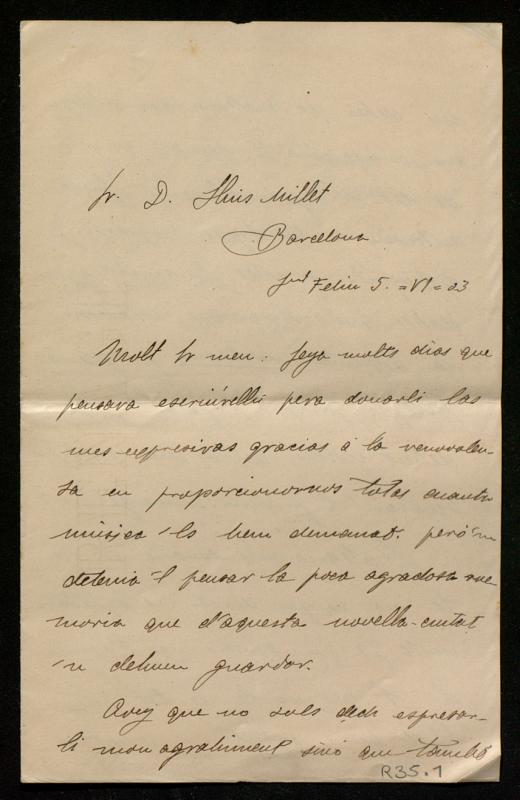 Sr. D. Lluis Millet
Barcelona
Snt Feliu 5. = VI = 03
Molt Sr meu: feya molts dias que
pensava escriúrelli pera donarli las
mes expresivas gracias á la venovolen-
sa en proporcionarnos totas cuanta
música 'ls hem demanat. peró 'm
detenia 'l pensar la poca agradosa me
moria que d'aquesta novella-ciutat
'n deheu guardar.
Avuy que no sols dech espresar-
li mon agrahiment sinó que també
R35.1